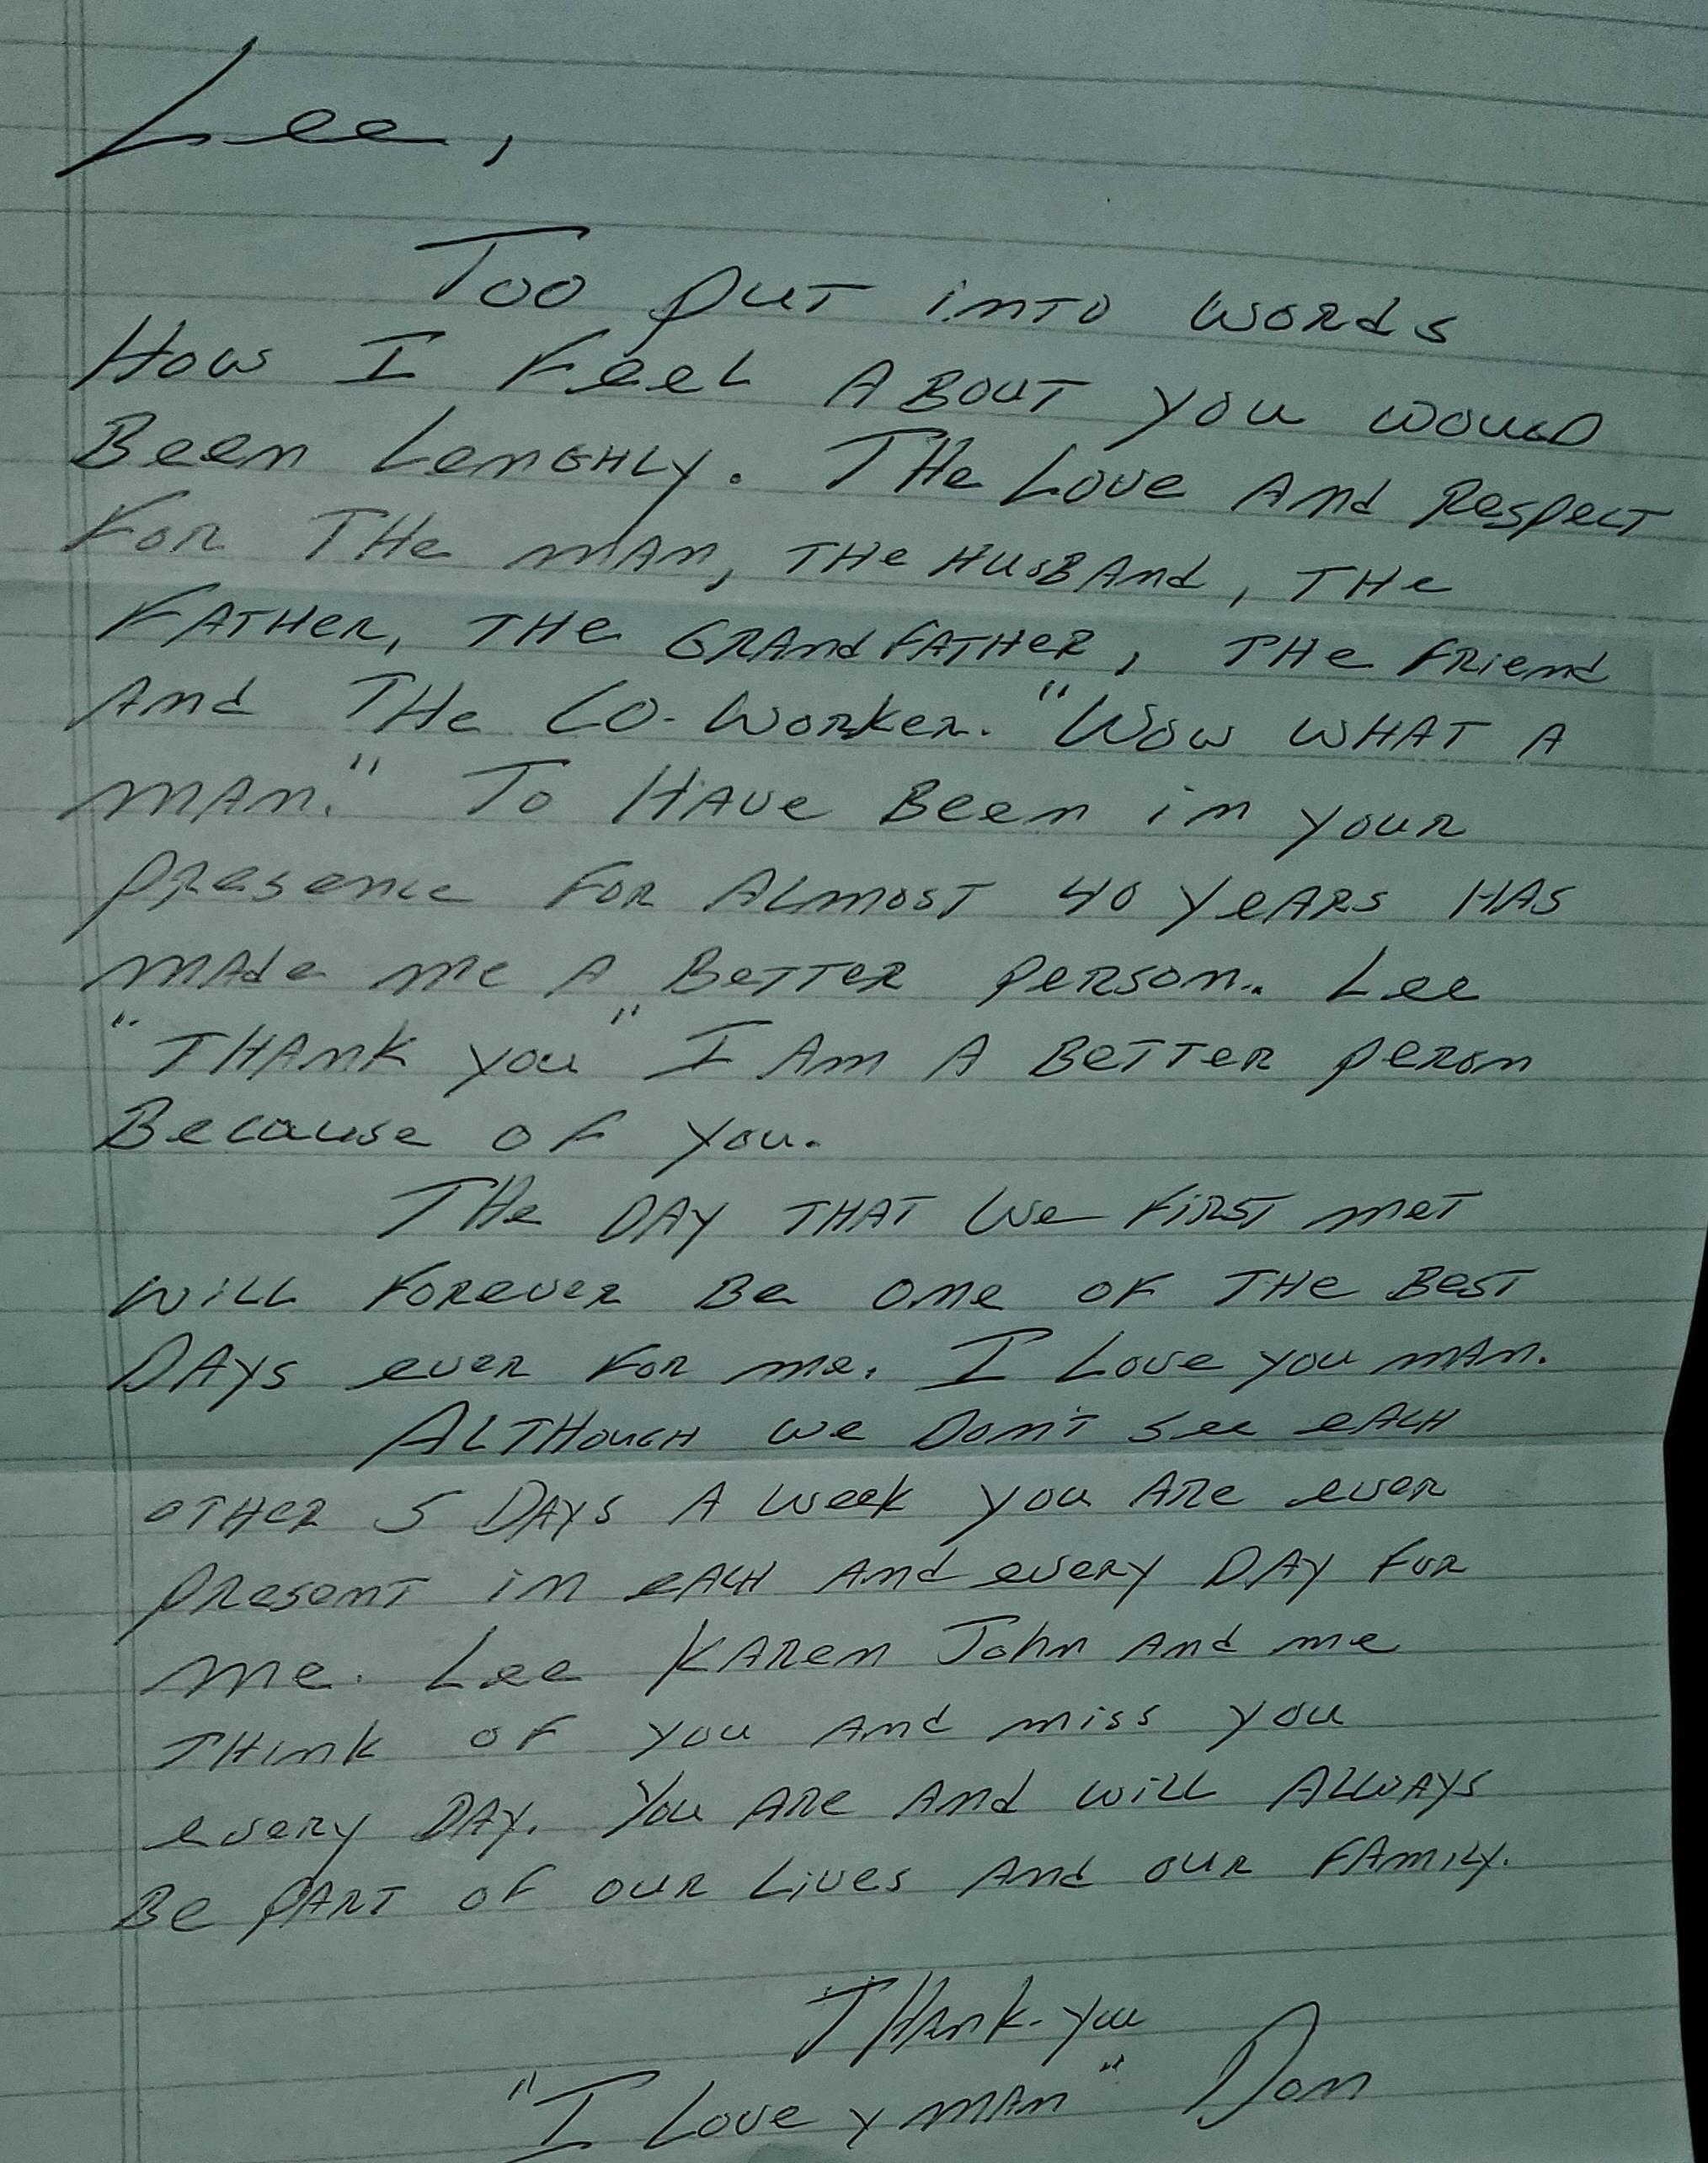 Lee,
Too put into words
How I Feel About you would
Been Lenghly. The Love And Respect
For The man, the Husband, the
Father, the Grandfather, the friend
And The Co-Worker. "Wow what a
man." To Have Been in your
presence for Almost 40 years has
made me a Better person.. Lee
"Thank you" I Am A Better peron
Because of you.
The Day that We First met
will Forever Be one of the Best
Days ever for me. I Love you man.
Although we Don't see each
other 5 Days A week you Are ever
present in each And every Day for
me. Lee Karen John And me
Think of you And miss you
every Day. You Are And will Always
Be part of our Lives And our Family.
Thank-you
"I Love y man" Don